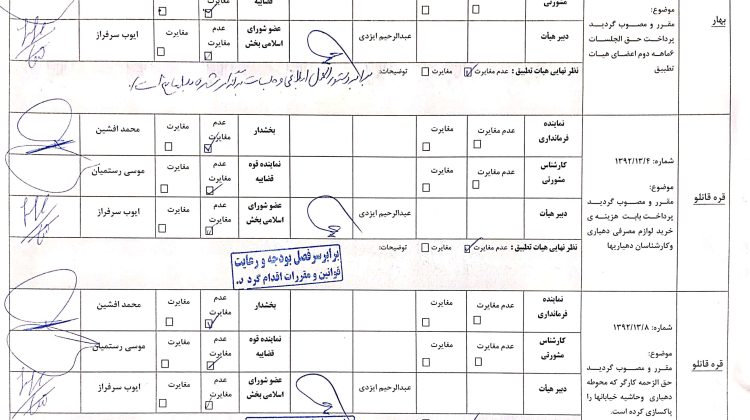 بهار
موضوع:
مقرر و مصوب گردید
پرداخت حق الجلسات
۶ماهه دوم اعضای هیات
تطبیق
مشورتی
مغایرت
قضاییه
مغایرت
دبیر هیأت
عبدالرحیم ایزدی
عضو شورای اسلامی بخش
عدم مغایرت
مغایرت
ایوب سرفراز
نظر نهایی هیات تطبیق: عدم مغایرت مغایرت توضیحات:
قره قانلو
شماره: ۱۳۹۲/۱۳/۴
موضوع:
مقرر و مصوب گردید
پرداخت بابت هزینه ی
خرید لوازم مصرفی دهیاری
وکارشناسان دهیاریها
نماینده فرمانداری
عدم مغایرت
مغایرت
بخشدار
عدم مغایرت
مغایرت
محمد افشین
کارشناس مشورتی
عدم مغایرت
مغایرت
نماینده قوه قضاییه
عدم مغایرت
مغایرت
موسی رستمیان
دبیر هیأت
عبدالرحیم ایزدی
عضو شورای اسلامی بخش
عدم مغایرت
مغایرت
ایوب سرفراز
نظر نهایی هیات تطبیق: عدم مغایرت مغایرت توضیحات:
برابر سرفصل بودجه و رعایت
قوانین و مقررات اقدام گردد.
قره قانلو
شماره: ۱۳۹۲/۱۳/۸
موضوع:
مقرر و مصوب گردید
حق الزحمه کارگر که محوطه
دهیاری وحاشیه خیابانها را
پاکسازی کرده است.
نماینده فرمانداری
عدم مغایرت
مغایرت
بخشدار
عدم مغایرت
مغایرت
محمد افشین
کارشناس مشورتی
عدم مغایرت
مغایرت
نماینده قوه قضاییه
عدم مغایرت
مغایرت
موسی رستمیان
دبیر هیأت
عبدالرحیم ایزدی
عضو شورای اسلامی بخش
عدم مغایرت
مغایرت
ایوب سرفراز